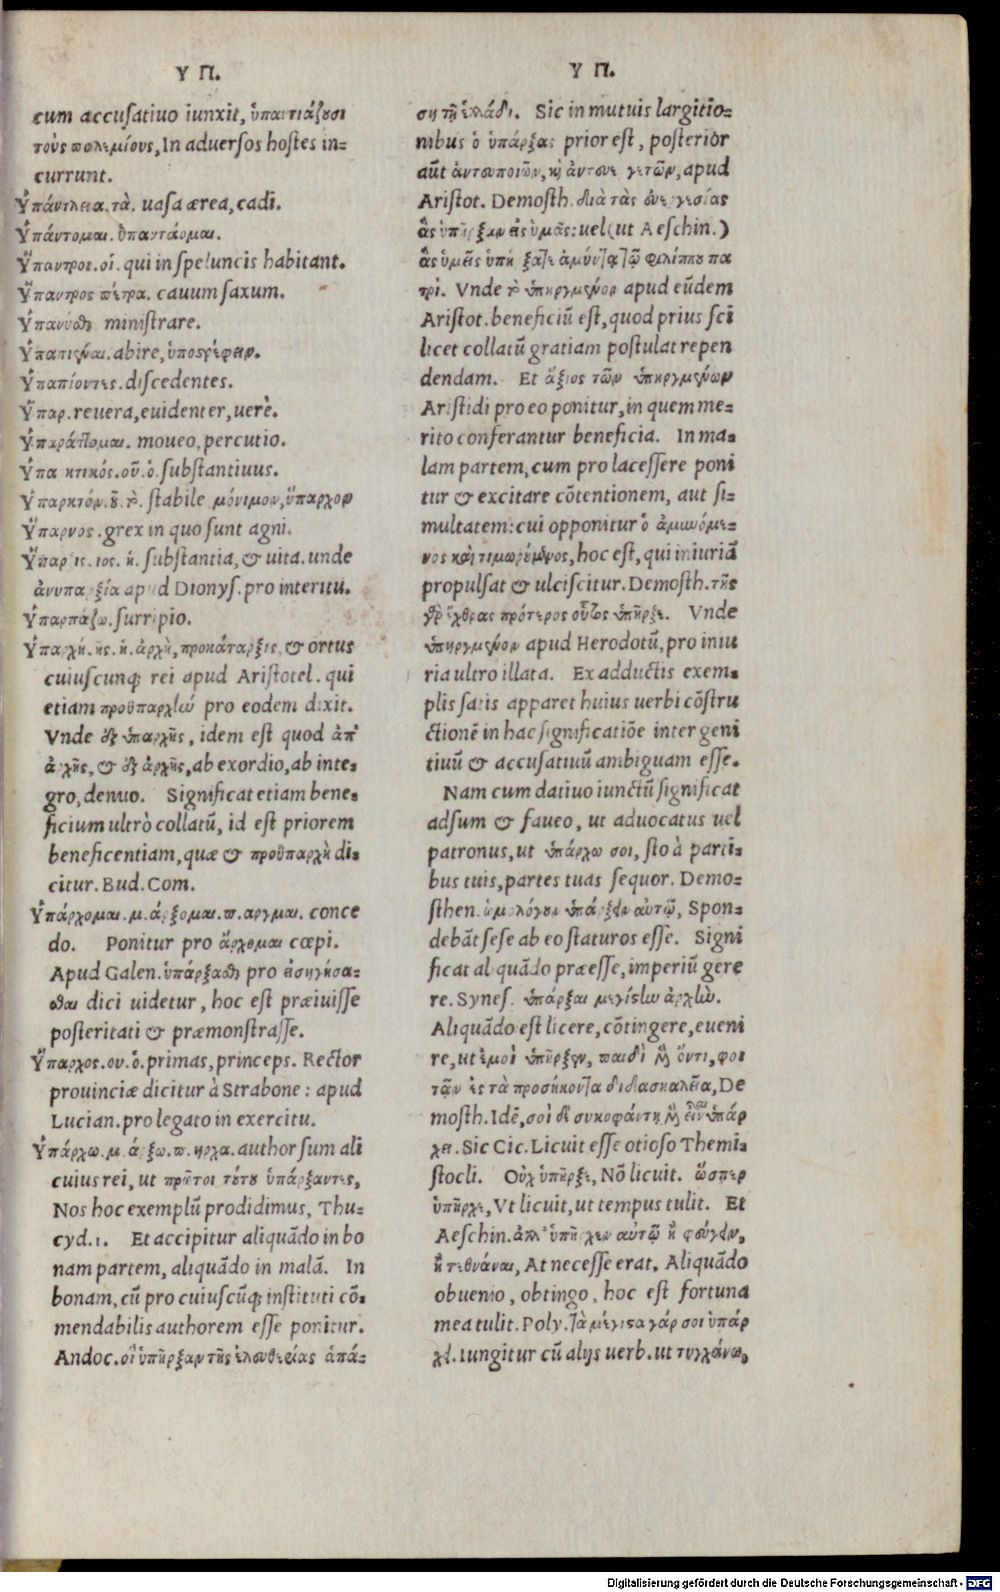 Υ Π.
cum accusatiuo iunxit, ὑπαντιάζουσι
τοὺς πολεμίους, In aduersos hostes in-
currunt.
Ὑπάντλεια. τὰ. uasa ærea, cadi.
Ὑπάντομαι. ὑπαντάομαι.
Ὕπαντροι. οἱ. qui in speluncis habitant.
Ὕπαντρος πέτρα. cauum saxum.
ministrare.
abire, ὑποστρέφειν.
Ὑπαπίοντες. discedentes.
Ὕπαρ. reuera, euidenter, uerè.
Ὑπαράττομαι. moueo, percutio.
Ὑπαρκτικός. οῦ. ὁ. substantiuus.
Ὑπαρκτόν. οῦ. τὸ. stabile μόνιμον, ὕπαρχον
Ὕπαρνος. grex in quo sunt agni.
Ὕπαρξις. ιος. ἡ. substantia, & uita. unde
ἀνυπαρξία apud Dionys. pro interitu.
Ὑπαρπάζω. surripio.
Ὑπαρχή. ῆς. ἡ. ἀρχὴ, προκάταρξις, & ortus
cuiuscunq; rei apud Aristotel. qui
etiam προϋπαρχὴν pro eodem dixit.
Vnde ἐξ ὑπαρχῆς, idem est quod ἀπ'
ἀρχῆς, & ἐξ ἀρχῆς, ab exordio, ab inte-
gro, denuo. Significat etiam bene-
ficium ultrò collatũ, id est priorem
beneficentiam, quæ & προϋπαρχὴ di-
citur. Bud. Com.
Ὑπάρχομαι. μ. άρξομαι. π. αργμαι. conce
do. Ponitur pro ἄρχομαι cœpi.
Apud Galen. ὑπάρξασθαι pro εἰσηγήσα-
σθαι dici uidetur, hoc est præiuisse
posteritati & præmonstrasse.
Ὕπαρχος. ου. ὁ. primas, princeps. Rector
prouinciæ dicitur à Strabone: apud
Lucian. pro legato in exercitu.
Ὑπάρχω. μ. άρξω. π. ηρχα. author sum ali
cuius rei, ut πρῶτοι τούτου ὑπάρξαντες,
Nos hoc exemplũ prodidimus, Thu-
cyd. 1. Et accipitur aliquãdo in bo
nam partem, aliquãdo in malã. In
bonam, cũ pro cuiuscũq; instituti cõ-
mendabilis authorem esse ponitur.
Andoc. οἳ ὑπῆρξαν τῆς ἐλευθερίας ἁπά-
Υ Π.
σῃ τῇ ἑλλάδι. Sic in mutuis largitio-
nibus ὁ ὑπάρξας prior est, posterior
aũt ἀντευποιῶν, καὶ ἀντευεργετῶν, apud
Aristot. Demosth. διὰ τὰς εὐεργεσίας
ἃς ὑπῆρξαν εἰς ὑμᾶς: uel (ut Aeschin.)
ἃς ὑμεῖς ὑπήρξατε ἀμύντᾳ τῷ φιλίππου πα
τρί. Vnde τὸ ὑπηργμένον apud eũdem
Aristot. beneficiũ est, quod prius sci
licet collatũ gratiam postulat repen
dendam. Et ἄξιος τῶν ὑπηργμένων
Aristidi pro eo ponitur, in quem me-
rito conferantur beneficia. In ma-
lam partem, cum pro lacessere poni
tur & excitare cõtentionem, aut si-
multatem: cui opponitur ὁ ἀμυνόμε-
νος καὶ τιμωρούμενος, hoc est, qui iniuriã
propulsat & ulciscitur. Demosth. τῆς
γὰρ ἔχθρας πρότερος οὗτος ὑπῆρξε. Vnde
ὑπηργμένον apud Herodotũ, pro iniu
ria ultro illata. Ex adductis exem-
plis satis apparet huius uerbi cõstru
ctionẽ in hac significatiõe inter geni
tiuũ & accusatiuũ ambiguam esse.
Nam cum datiuo iunctũ significat
adsum & faueo, ut aduocatus uel
patronus, ut ὑπάρχω σοι, sto à parti-
bus tuis, partes tuas sequor. Demo-
sthen. ὡμολόγουν ὑπάρξειν αὐτῷ, Spon-
debãt sese ab eo staturos esse. Signi
ficat aliquãdo præesse, imperiũ gere
re. Synes. ὑπάρξαι μεγίστην ἀρχὴν.
Aliquãdo est licere, cõtingere, eueni
re, ut ἐμοὶ ὑπῆρξεν, παιδὶ μὲν ὄντι, φοι
τᾷν εἰς τὰ προσήκοντα διδασκαλεῖα, De
mosth. Idẽ, σοὶ δὲ συκοφάντῃ μὲν εἶναι ὑπάρ
χει. Sic Cic. Licuit esse otioso Themi-
stocli. Οὐχ ὑπῆρξε, Nõ licuit. ὥσπερ
ὑπῆρχε, Vt licuit, ut tempus tulit. Et
Aeschin. ἀλλ' ὑπῆρχεν αὐτῷ ἢ φεύγειν,
ἢ τεθνάναι, At necesse erat. Aliquãdo
obuenio, obtingo, hoc est fortuna
mea tulit. Poly. τὰ μέγιστα γάρ σοι ὑπάρ
χει. Iungitur cũ alijs uerb. ut τυγχάνω,
Digitalisierung gefördert durch die Deutsche Forschungsgemeinschaft - DFG